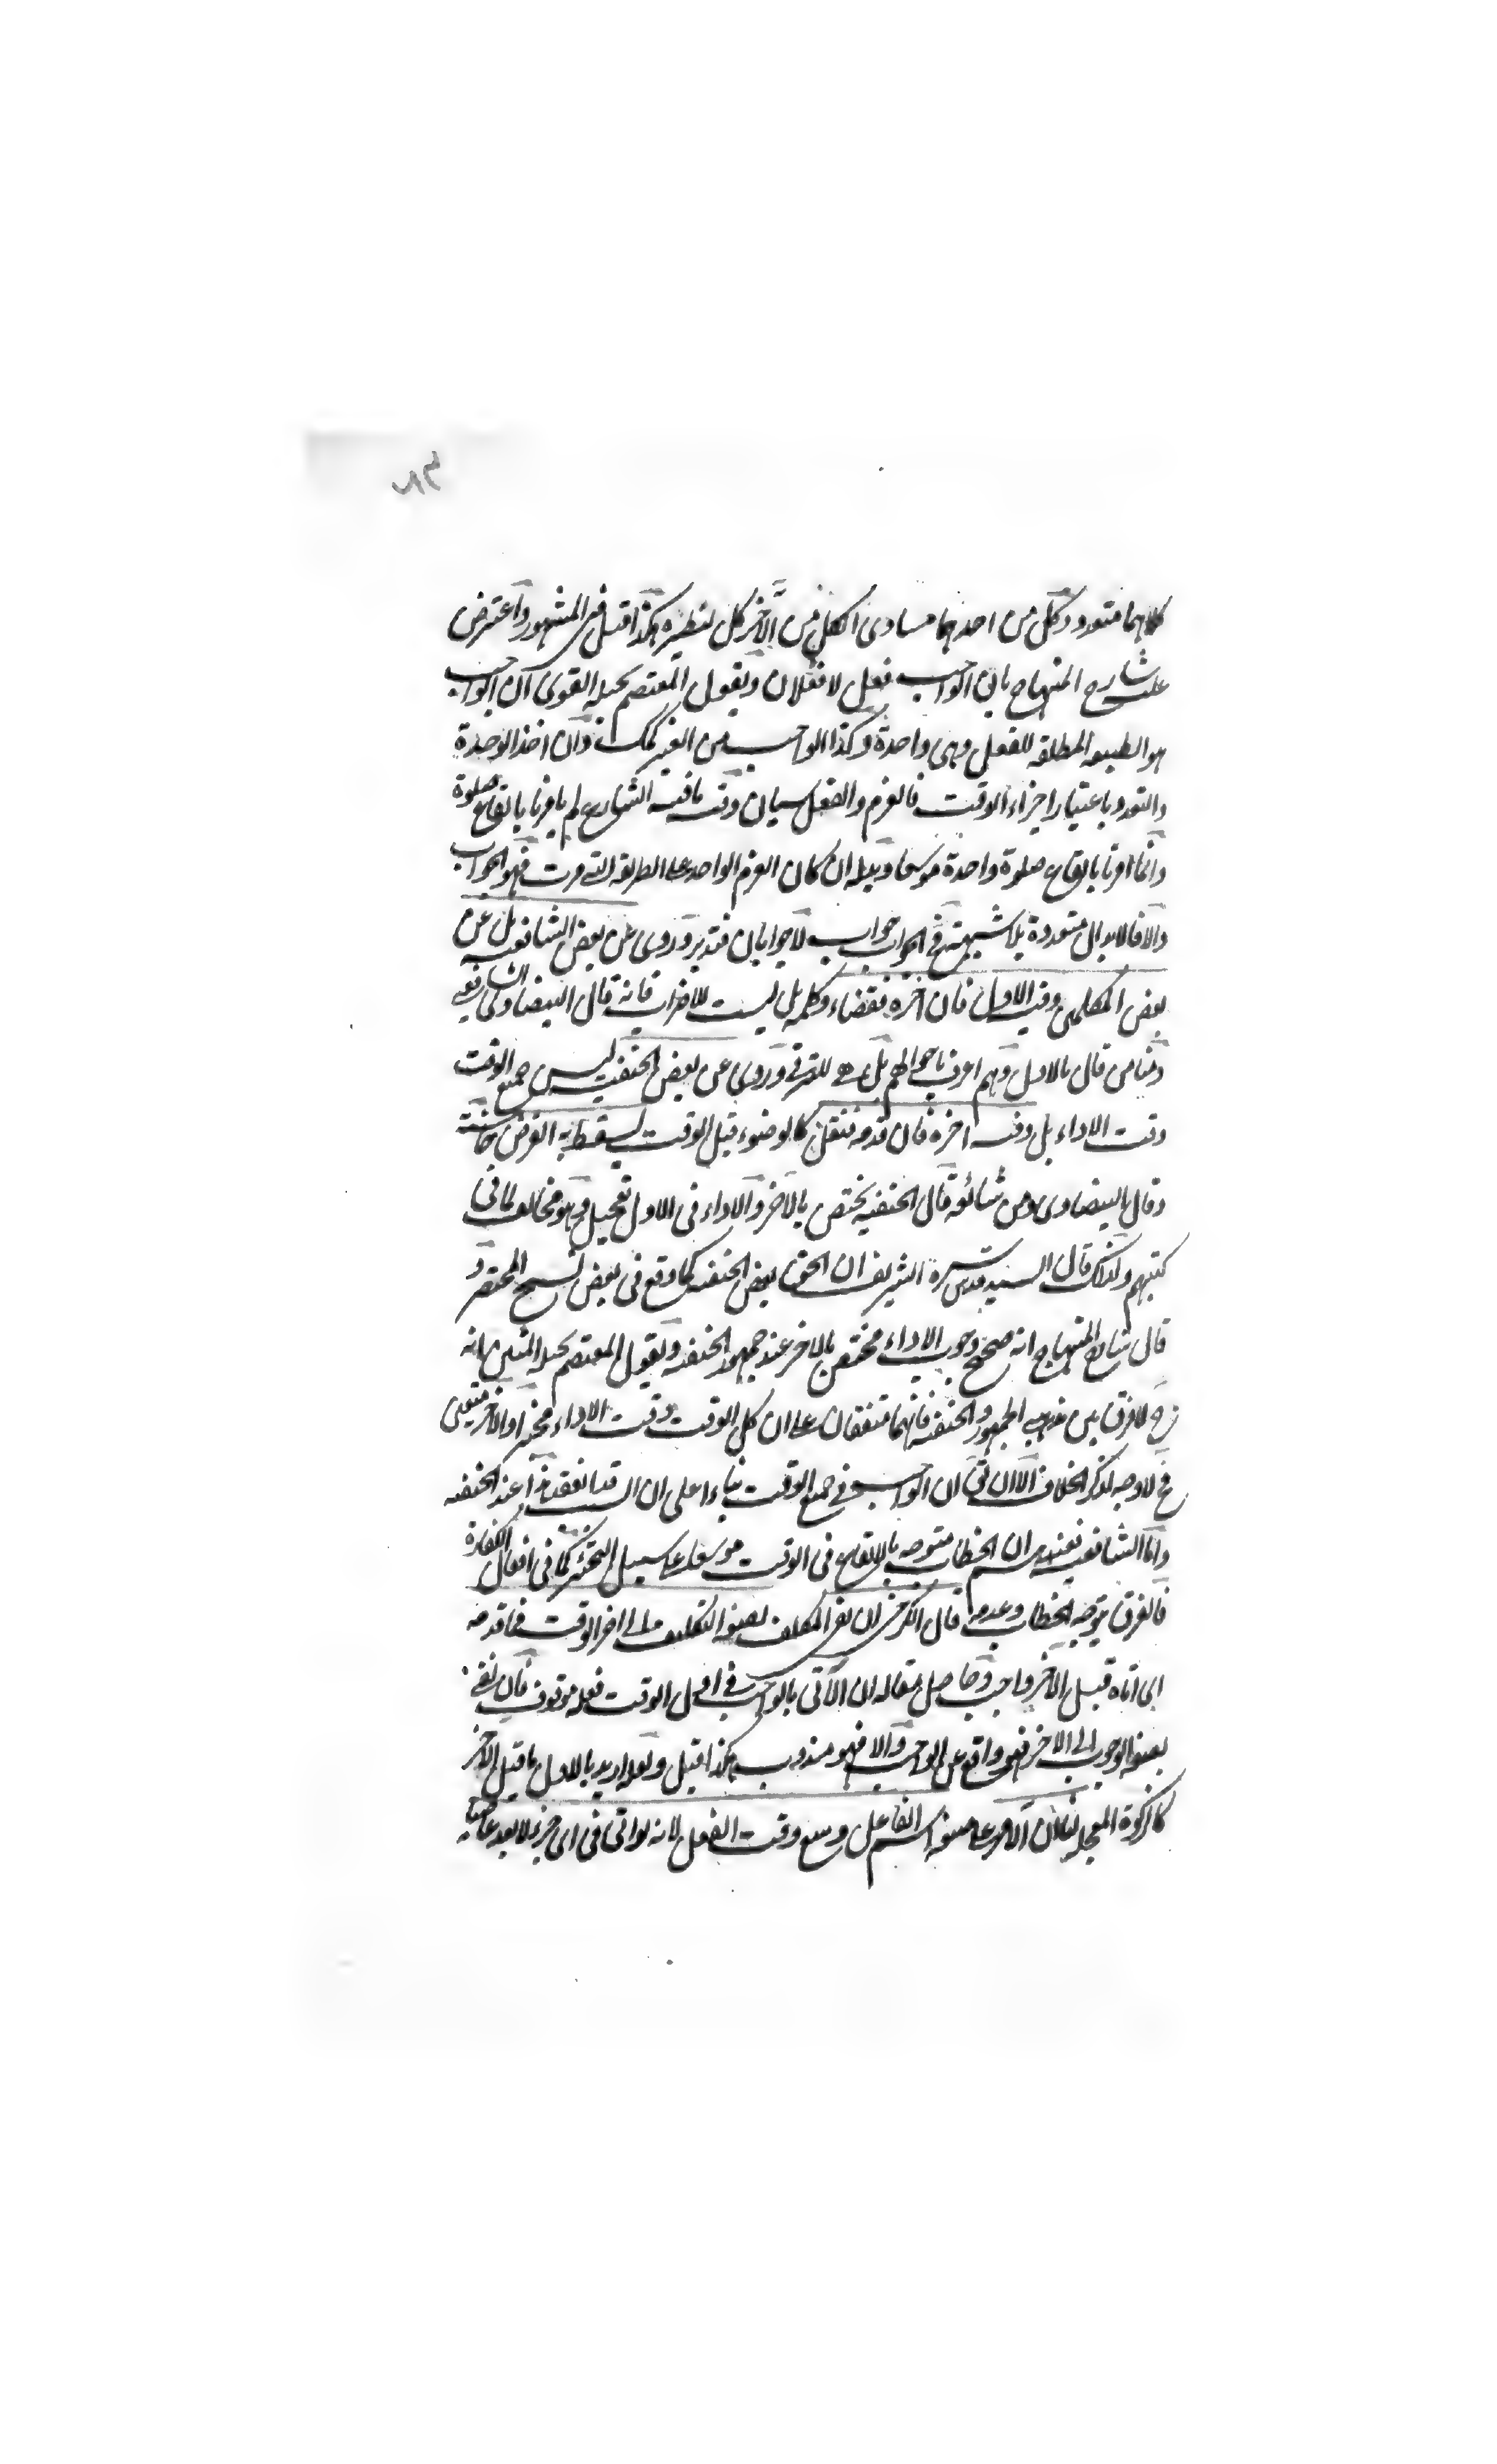 كلاهما متعدد وكل من احدهما مساوى الكل من الآخر كل لنظيره هكذا قيل فى المشهور واعترض
عليه شارح المنهاج بان الواجب فعل لا فعلان ويقول المعتصم بحبله القوى ان الواجب
هو الطبيعه المطلقه للفعل وهى واحدة وكذا الواجب من العزم كك وان اخذ الوحدة
والتعدد باعتبار اجزاء الوقت فالعزم والفعل سيان وقت ما فيه الشارع لم يامرنا بايقاع صلوة
وانما امرنا بايقاع صلوة واحدة موسعا وبدله ان كان العزم الواحد على الطريقه التى مرت فهو الجواب
والا فالابدال متعددة بلا شبهة فى الجواب جواب لا جوابان فتدبر وروى عن بعض الشافعيه بل عن
بعض المتكلمين وقته الاول فان اخره فقضاء وكلمه بل ليست للاضراب فانه قال البيضاوى الشافعى
ومنا من قال بالاول وهم اعرف باحوالهم بل هى للترقى وروى عن بعض الحنفيه ليس جميع الوقت
وقت الاداء بل وقته اخره فان قدمه فنفل كالوضوء قبل الوقت يسقط به الفرض
وقال البيضاوى ومن شائعه قال الحنفيه يختص بالاخر والاداء فى الاول تعجيل وهو مخالف لما فى
كتبهم ولذلك قال السيد قدس سره الشريف ان الحق بعض الحنفيه كما وقع فى بعض نسخ المختصر و
قال شارح المنهاج انه صحح وجوب الاداء مختص بالاخر عند جمهور الحنفيه ويقول المعتصم بحبله المتين انه
ح لا فرق بين مذهب الجمهور والحنفيه فانهما متفقان على ان كل الوقت وقت الاداء مخير او الاخر متعين
فح لا وجه لذكر الخلاف الا ان يق ان الواجب فى جميع الوقت بناء على ان السبب عند الحنفيه
واما الشافعيه فعندهم ان الخطاب متوجه بالايقاع فى الوقت موسعا على سبيل التخيير كما فى افعال الكفارة
فالفرق بتوجه الخطاب وعدمه قال الكرخى ان بقى المكلف بصفه التكليف الى اخر الوقت فما قدمه
اى اتاه قبل الاخر واجب وحاصل مقاله ان الآتى بالواجب فى اول الوقت فعله موقوف فان بقى
بصفه الوجوب الى الاخر فهو واقع عن الواجب والا فهو مندوب هكذا قيل ولعله اريد بالاول ما قبل الآخر
كالزكوة المعجله لنا ان الامر على صيغه اسم الفاعل وسع وقت الفعل لانه لو اتى فى اى جزء لا يعد عاصيا